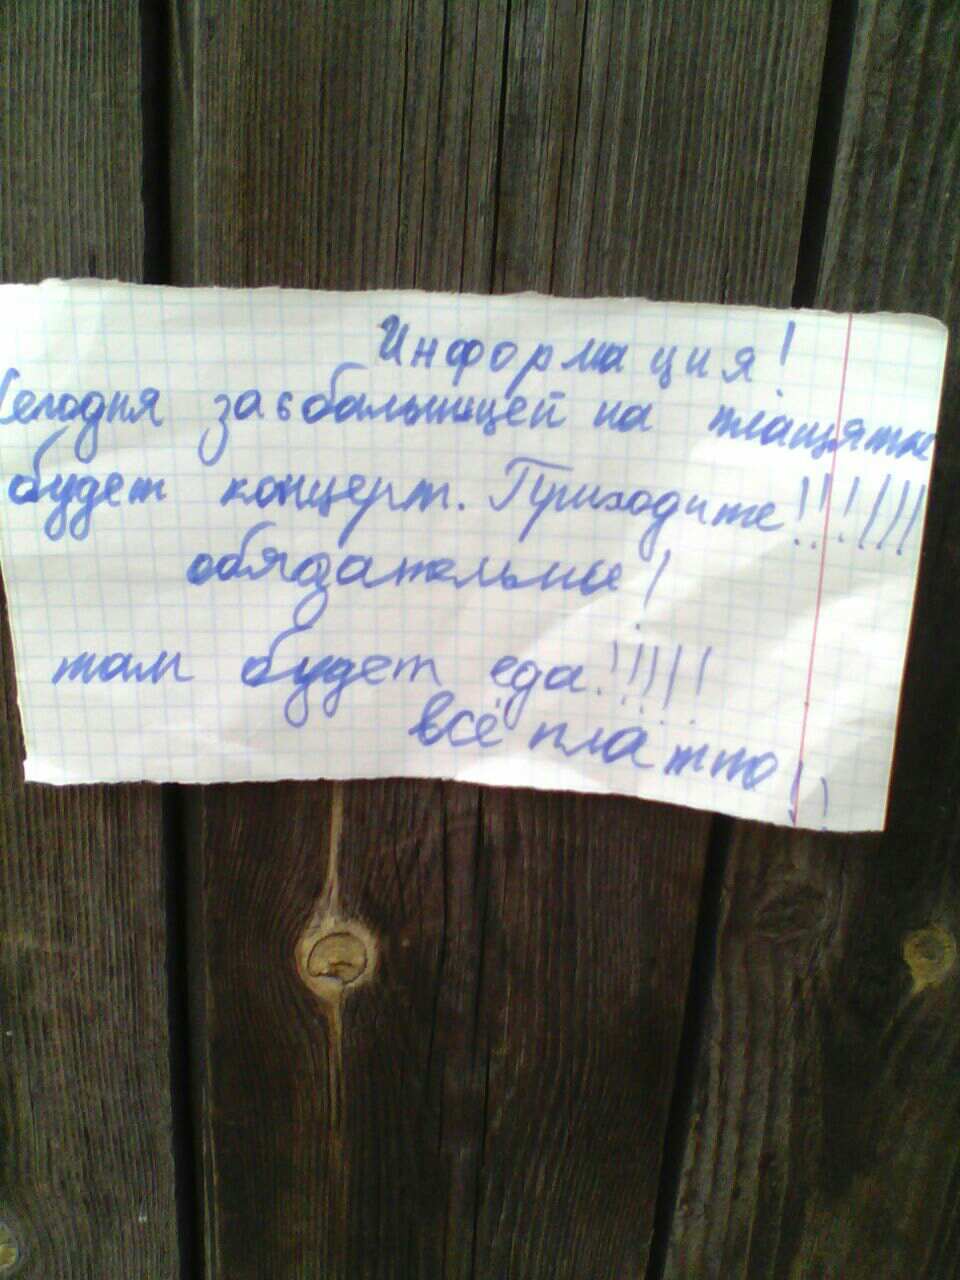 Информация!
Сегодня за больницей на
будет концерт. Приходите!!!!!!
обязательно!
там будет еда!!!!!
всё платно!!